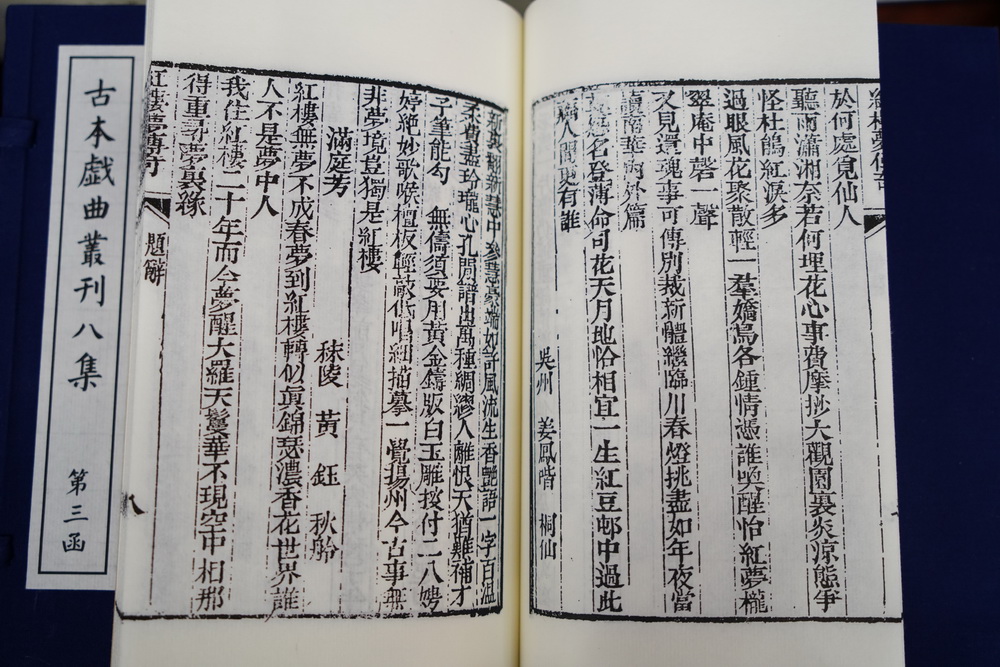 古本戲曲叢刊八集
第三函
於何處覓仙人
聽雨瀟湘奈若何埋花心事費摩抄大觀園裏炎涼態爭
怪杜鵑紅淚多
過眼風花聚散輕一羣嬌鳥各鍾情憑誰喚醒怡紅夢櫳
翠庵中磬一聲
又見還魂事可傳別裁新體繼臨川春燈挑盡如年夜當
讀南華內外篇
名登薄命司花天月地恰相宜一生紅豆邨中過此
人間更有誰
吳州 姜鳳喈 桐仙
紅樓無夢不成春夢到紅樓轉似眞錦瑟濃香花世界誰
人不是夢中人
我住紅樓二十年而今夢醒大羅天鬘華不現空中相那
得重尋夢裏緣
秣陵 黃鈺 秋舲
滿庭芳
非夢境豈獨是紅樓
婷絕妙歌喉檀板輕敲低唱細描摹一覺揚州今古事無
子筆能勾 無儔須要用黃金鑄版白玉雕按付二八娉
柔費盡玲瓏心孔閒譜出萬種綢繆人離恨天猶難補才
風流生香艷語一字百溫
紅樓夢傳奇
題辭
八